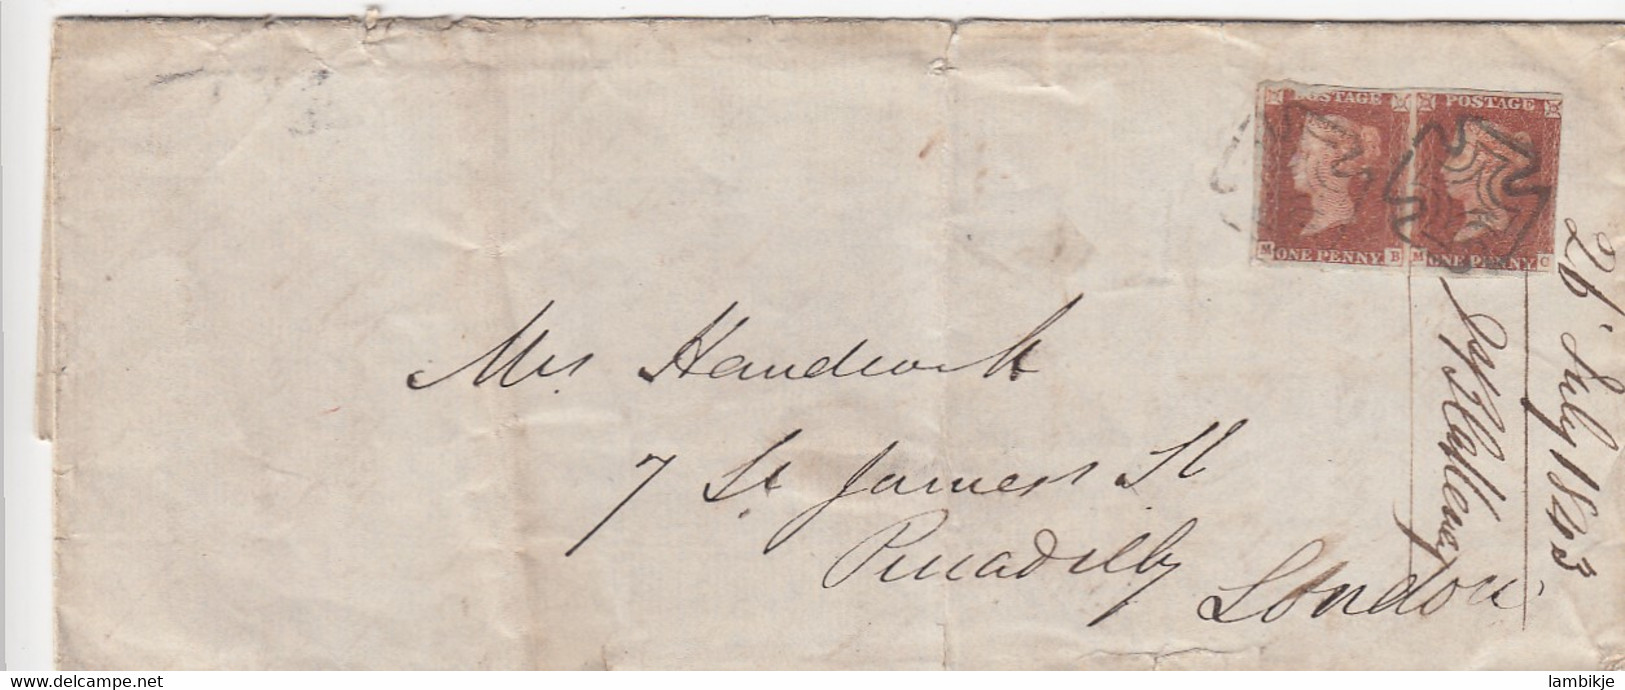 POSTAGE POSTAGE
M ONE PENNY B M ONE PENNY C
Mrs Handwork
7 St James St
Piccadilly
London
26 July 1843
www.delcampe.net
lambikje